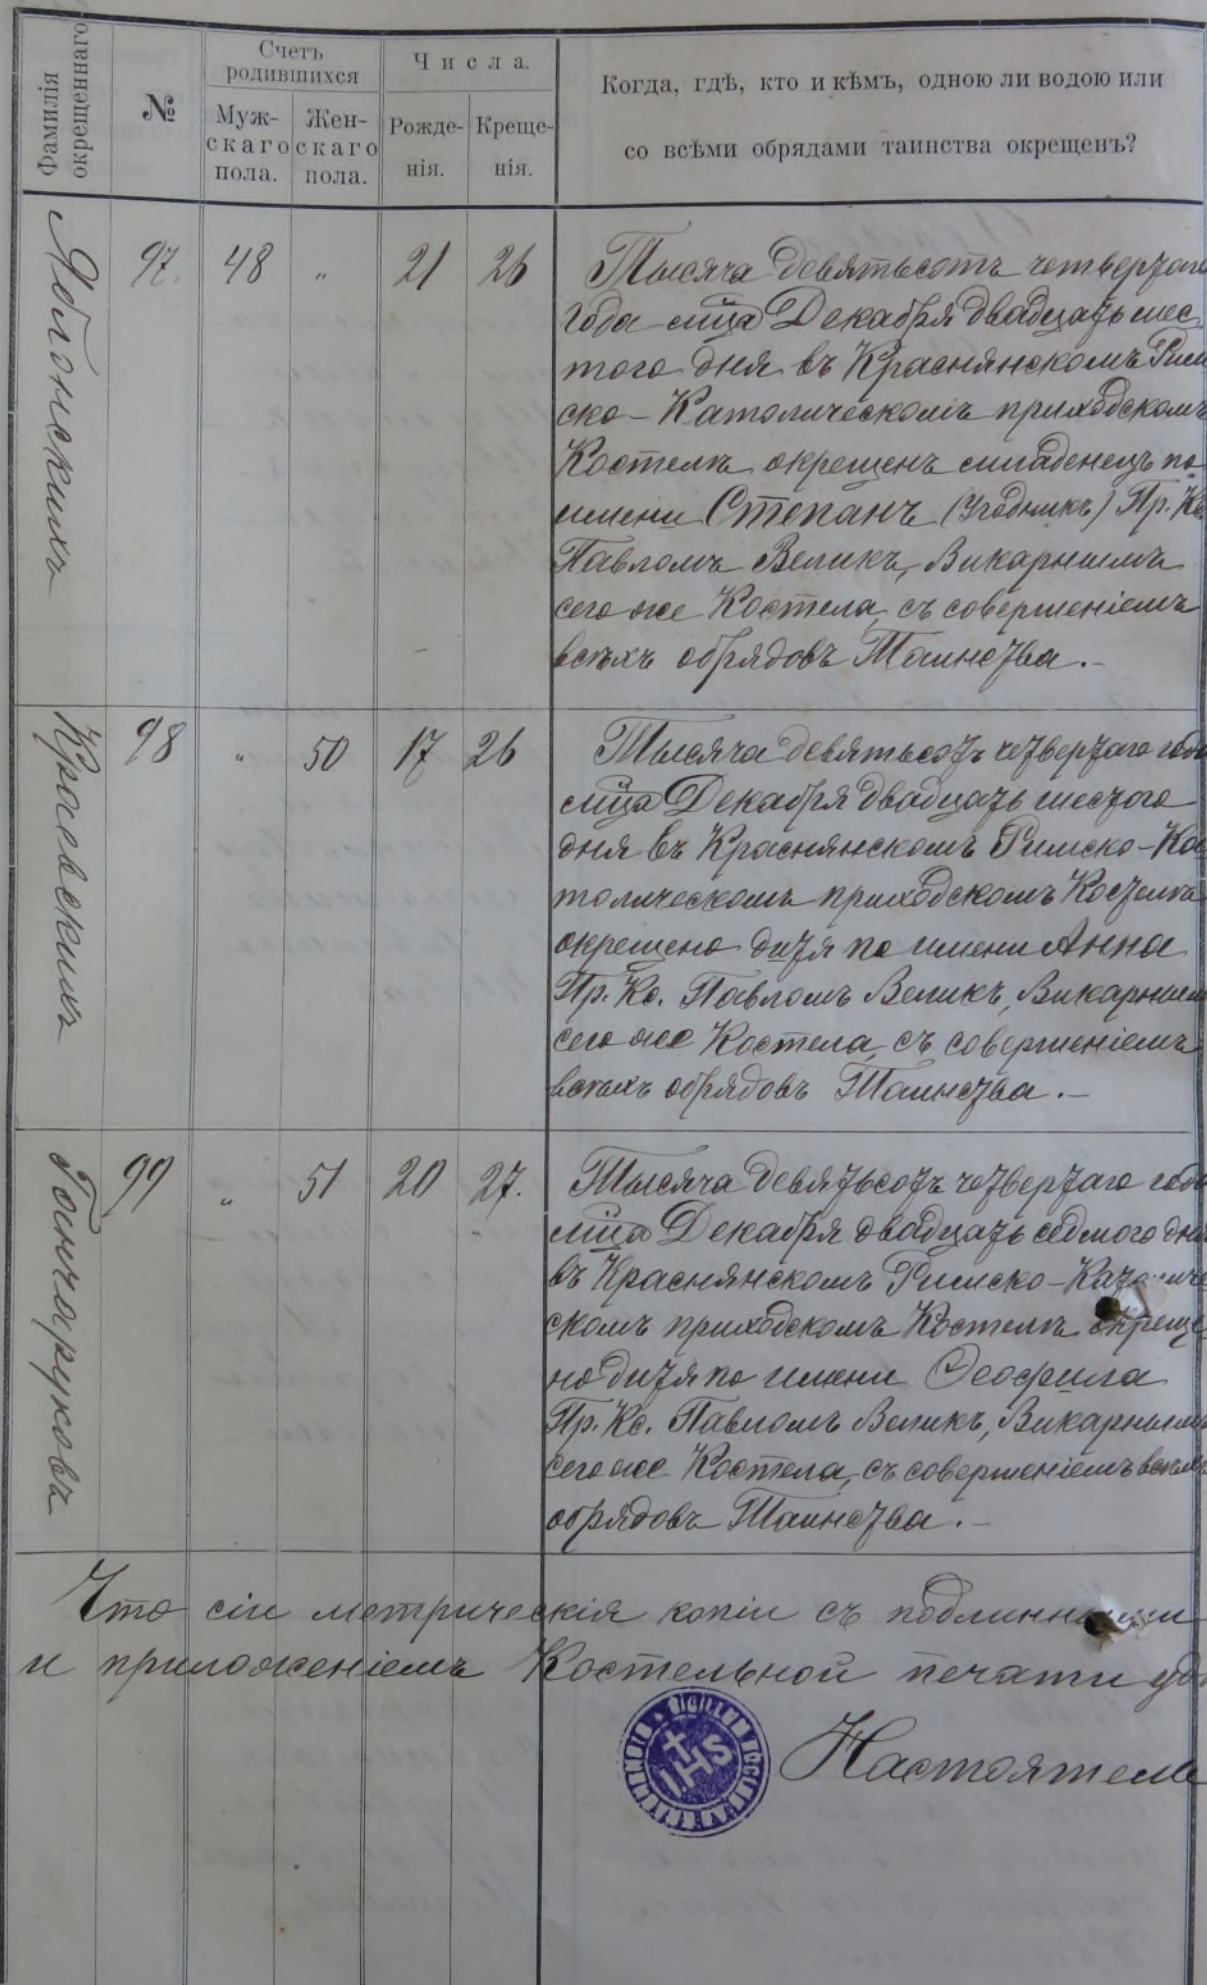 Фамилія окрещеннаго
№
Счетъ родившихся
Муж-скаго пола.
Жен-скаго пола.
Числа.
Рожде-нія.
Креще-нія.
Когда, гдѣ, кто и кѣмъ, одною ли водою или
со всѣми обрядами таинства окрещенъ?
Яблонскихъ
97. 48 " 21 26
Тысяча девятьсотъ четвертаго
года мца Декабря двадцать шес
того дня въ Краснянскомъ Рим
ско-Католическомъ приходскомъ
Костелѣ окрещенъ младенецъ по
имени Степанъ (Угодникъ) Пр. Кс.
Павломъ Великъ, Викарнымъ
сего же Костела, съ совершеніемъ
всѣхъ обрядовъ Таинства.-
Краевскихъ
98 " 50 17 26
Тысяча девятьсотъ четвертаго года
мца Декабря двадцать шестого
дня въ Краснянскомъ Римско-Ка
толическомъ приходскомъ Костелѣ
окрещено дитя по имени Анна
Пр. Кс. Павломъ Великъ, Викарнымъ
сего же Костела, съ совершеніемъ
всѣхъ обрядовъ Таинства.-
Гончаруковъ
99 " 51 20 27.
Тысяча девятьсотъ четвертаго года
мца Декабря двадцать седмого дня
въ Краснянскомъ Римско-Католиче
скомъ приходскомъ Костелѣ окреще
но дитя по имени Ѳеофила
Пр. Кс. Павломъ Великъ, Викарнымъ
сего же Костела, съ совершеніемъ всѣхъ
обрядовъ Таинства.-
Что сіи метрическія копіи съ подлинными
и приложеніемъ Костельной печати удо
IHS
Настоятель